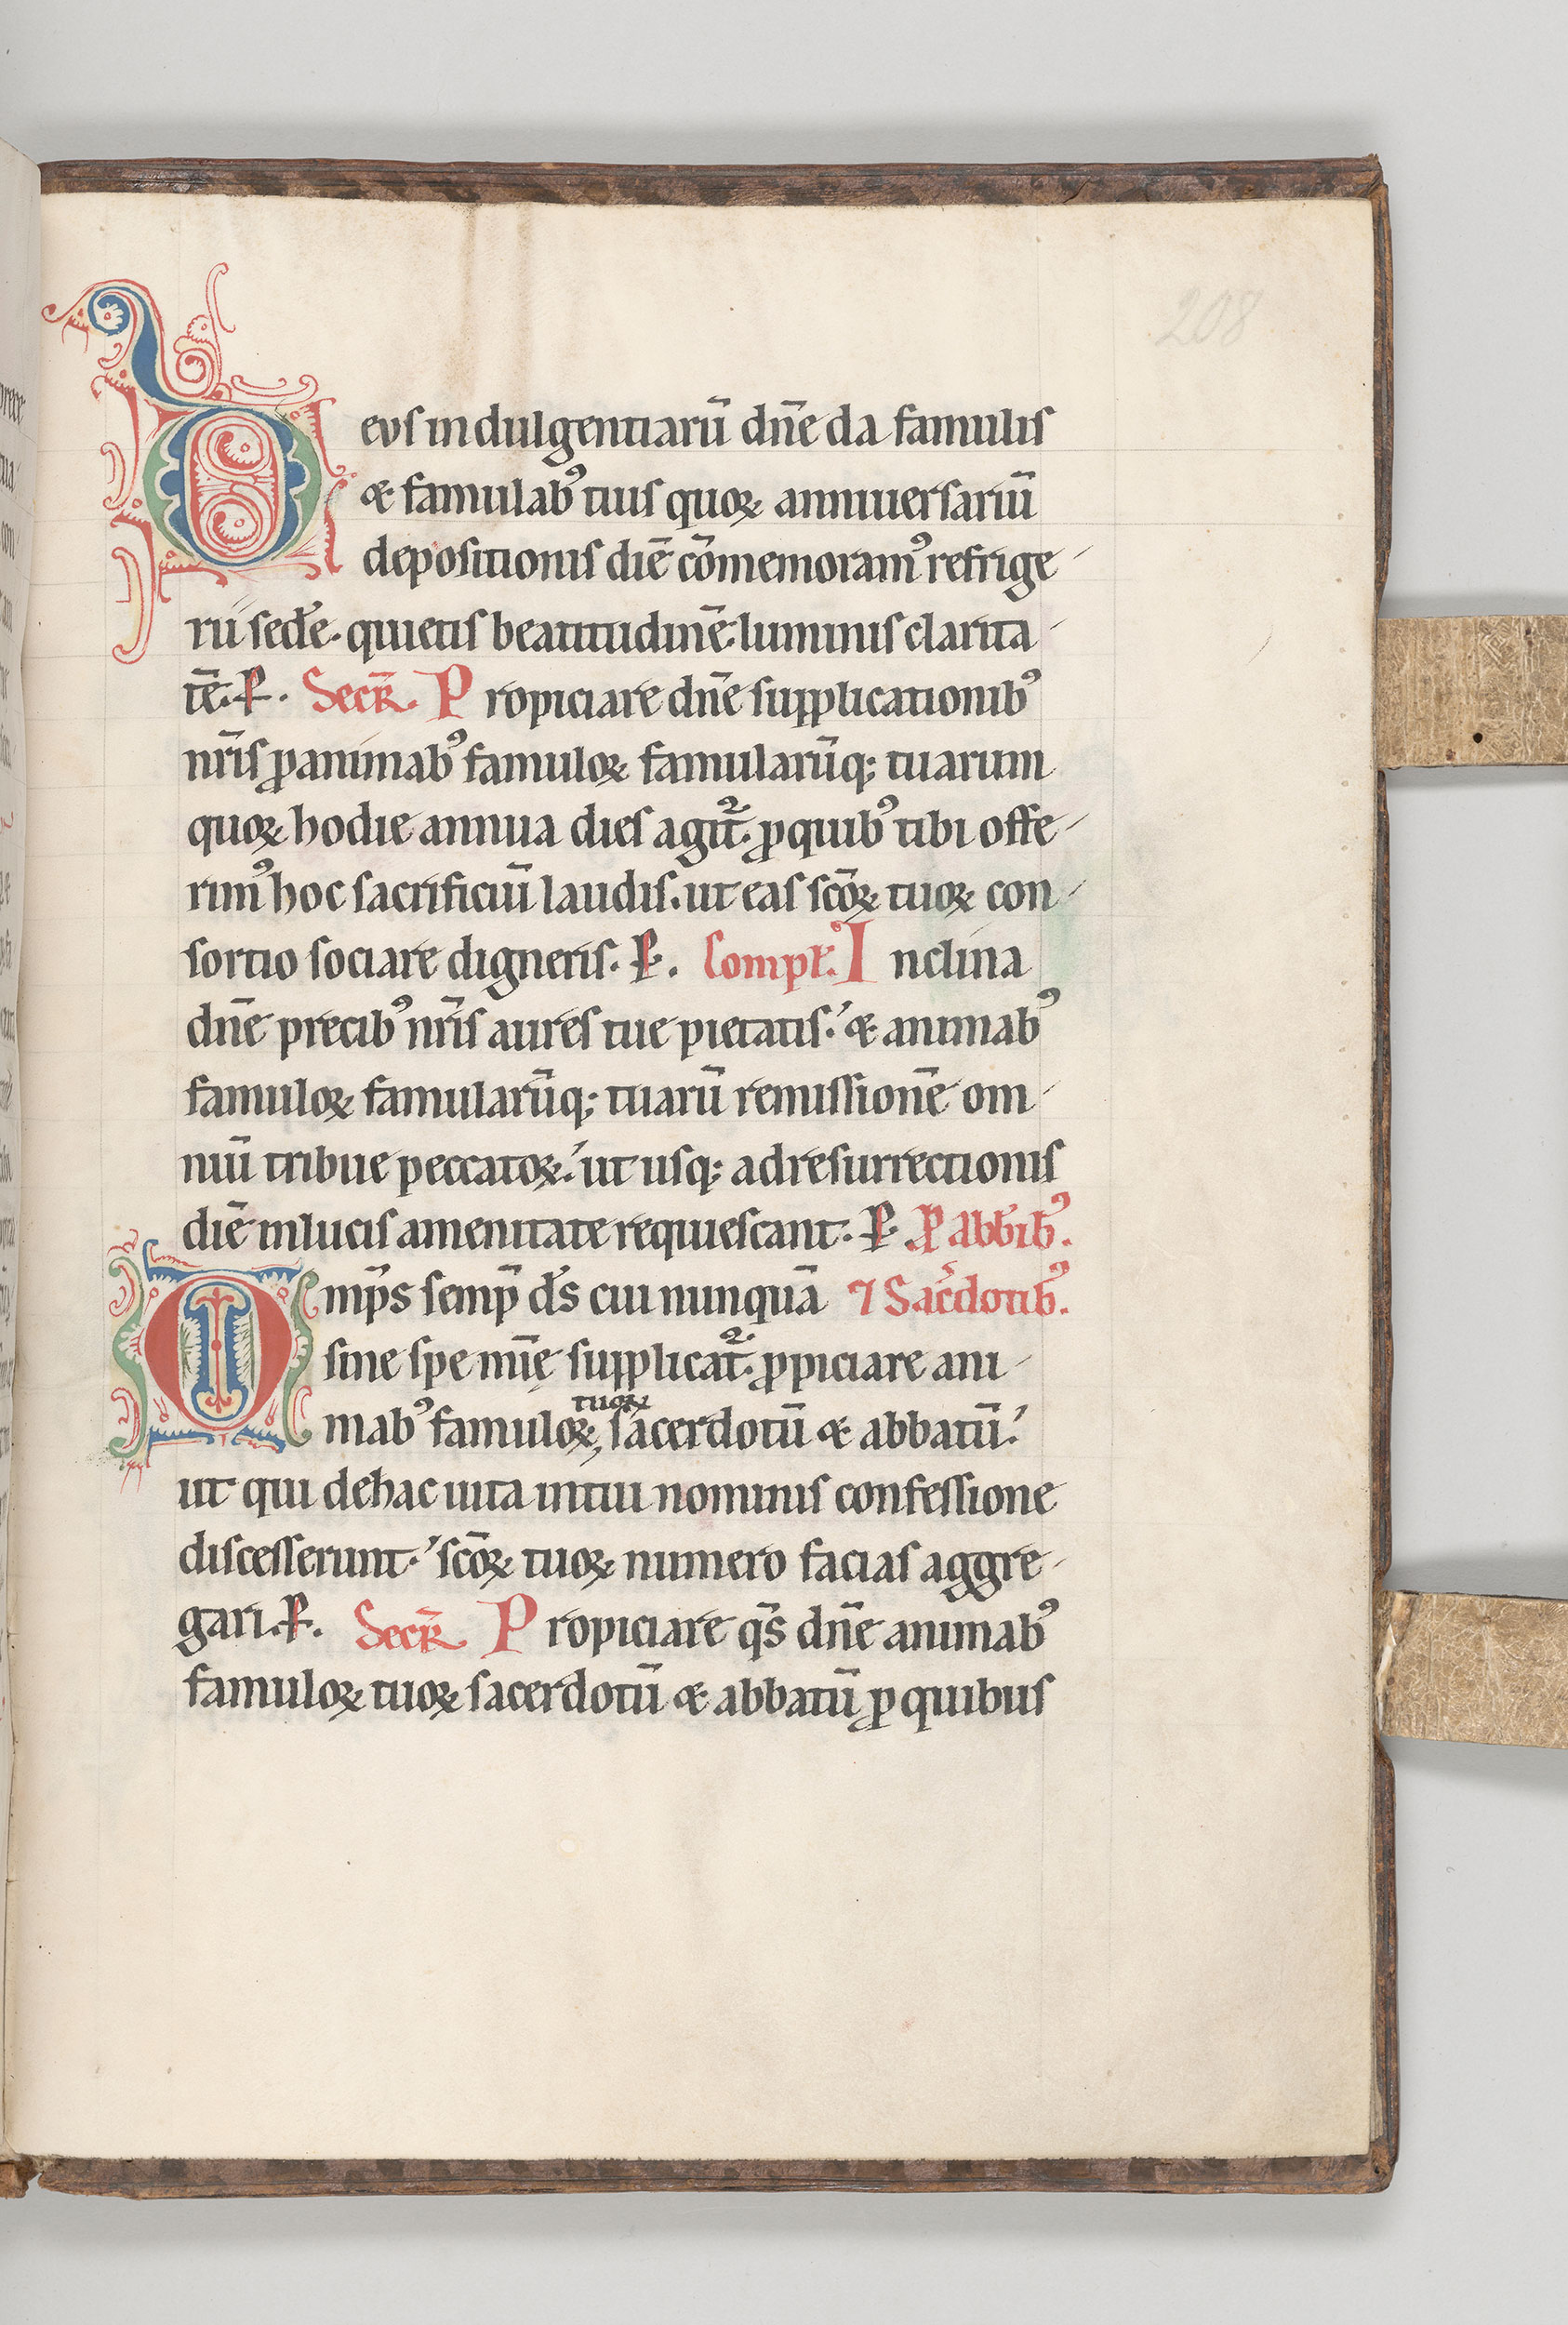 208
Deus indulgentiarū dn̄e da famulis
& famulabꝰ tuis quoꝝ anniuersariū
depositionis diē cōmemoramꝰ refrige
rii sedē. quietis beatitudinē. luminis clarita
tē. P. Secr̄. Propiciare dn̄e supplicationibꝰ
nr̄is ꝓ animabꝰ famuloꝝ famularūq; tuarum
quoꝝ hodie annua dies agit᷑. ꝓ quibꝰ tibi offe
rimꝰ hoc sacrificiū laudis. ut eas sc̄oꝝ tuoꝝ con
sortio sociare digneris. P. Compl̄. Inclina
dn̄e precibꝰ nr̄is aures tue pietatis. & animabꝰ
famuloꝝ famularūq; tuarū remissionē om
niū tribue peccatoꝝ. ut usq; ad resurrectionis
diē in lucis amenitate requiescant. P. P abbībꝰ.
Omp̄s semp̄ ds̄ cui nunquā ⁊ Sac̄dotibꝰ.
sine spe mīę supplicat᷑. ꝓpiciare ani
tuoꝝ
mabꝰ famuloꝝ, sacerdotū & abbatū.
ut qui de hac uita in tui nominis confessione
discesserunt. sc̄oꝝ tuoꝝ numero facias aggre
gari. P. Secr̄. Propiciare qs̄ dn̄e animabꝰ
famuloꝝ tuoꝝ sacerdotū & abbatū ꝓ quibus